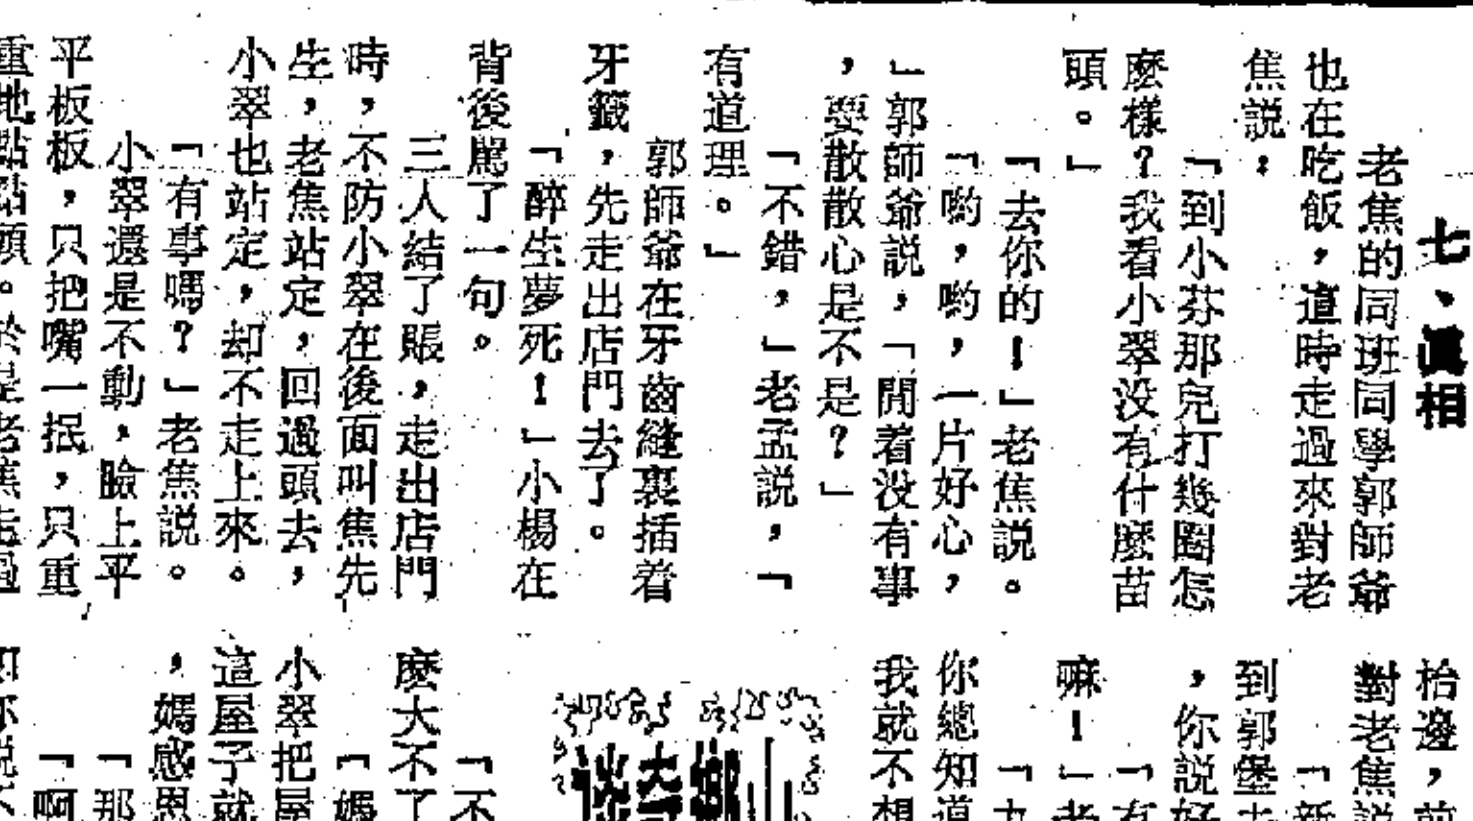 七、眞相
老焦的同班同學郭師爺
也在吃飯，這時走過來對老
焦説：
「到小芬那兒打幾圈怎
麼樣？我看小翠没有什麼苗
頭。」
「去你的！」老焦説。
「喲，喲，一片好心，
」郭師爺説，「閒着没有事
，要散散心是不是？」
「不錯，」老孟説，「
有道理。」
郭師爺在牙齒縫裏插着
牙籤，先走出店門去了。
「醉生夢死！」小楊在
背後駡了一句。
三人結了賬，走出店門
時，不防小翠在後面叫焦先
生，老焦站定，回過頭去，
小翠也站定，却不走上來。
「有事嗎？」老焦説。
小翠還是不動，臉上平
平板板，只把嘴一抿，只重
重地點點頭。於是老焦走過
枱邊，前
對老焦説
「新
到郭堡去
，你説好
「有
嘛！」老
「九
你總知道
我就不想
「不
麽大不了
「媽
小翠把屋
這屋子就
，媽感恩
「那
「啊